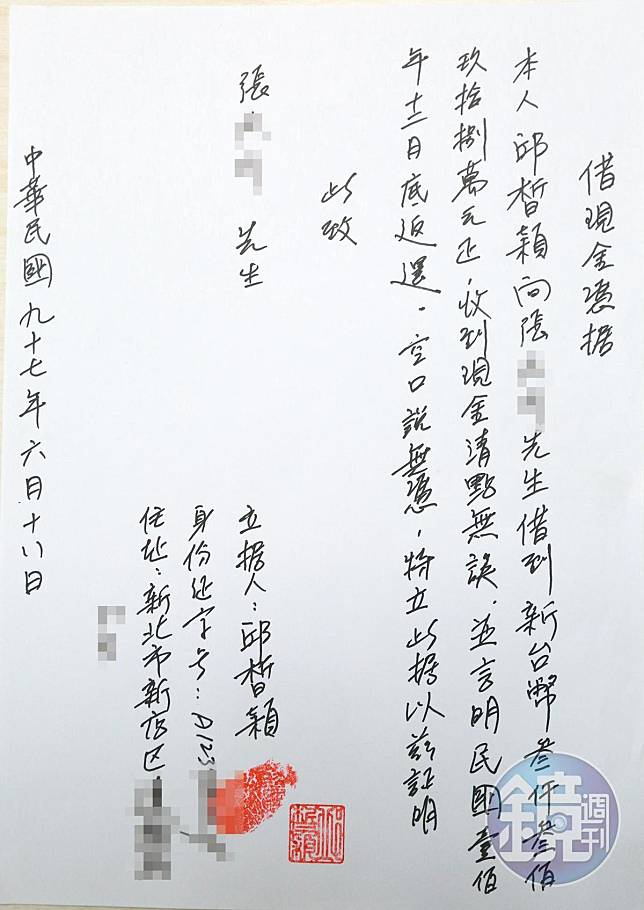 借現金憑據
本人邱皙穎向張 先生借到新台幣叁仟叁佰
玖拾捌萬元正，收到現金清點無誤．並言明民國壹佰
年十二月底返還。空口說無憑，特立此據以茲証明
此致
張 先生
立據人：邱皙穎
身份证字号：A123
住址：新北市新店区
中華民國九十七年六月十八日
鏡週刊